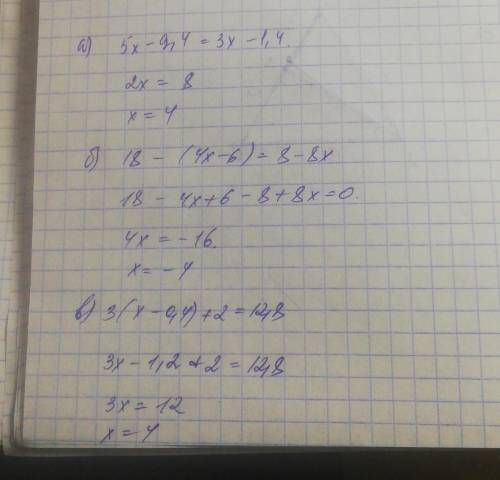 а) 5x - 9,4 = 3x - 1,4.
2x = 8
x = 4
б) 18 - (4x-6) = 8 - 8x
18 - 4x + 6 - 8 + 8x = 0.
4x = -16.
x = -4
в) 3(x - 0,4) + 2 = 12,8
3x - 1,2 + 2 = 12,8
3x = 12
x = 4